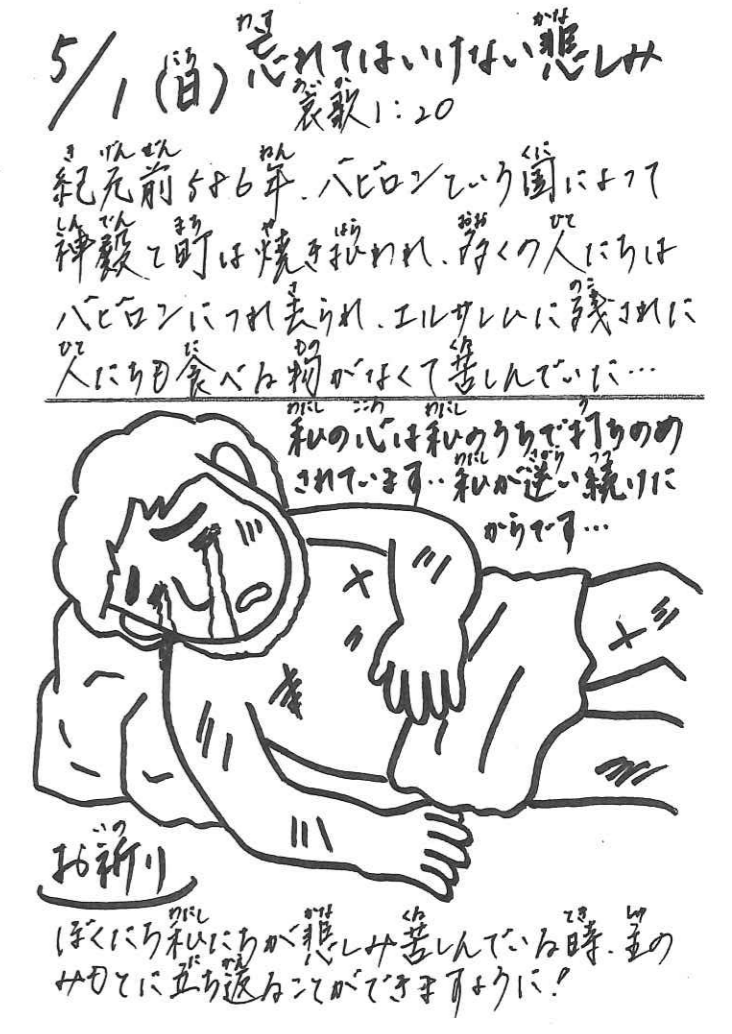 5/1(日) 忘れてはいけない悲しみ
哀歌1:20
紀元前586年、バビロンという国によって
神殿と町は焼き払われ、多くの人たちは
バビロンにつれ去られ、エルサレムに残された
人たちも食べる物がなくて苦しんでいた…
私の心は私のうちで打ちのめ
されています‥私が逆い続けた
からです…
お祈り
ぼくたち私たちが悲しみ苦しんでいる時、主の
みもとに立ち返ることができますように!